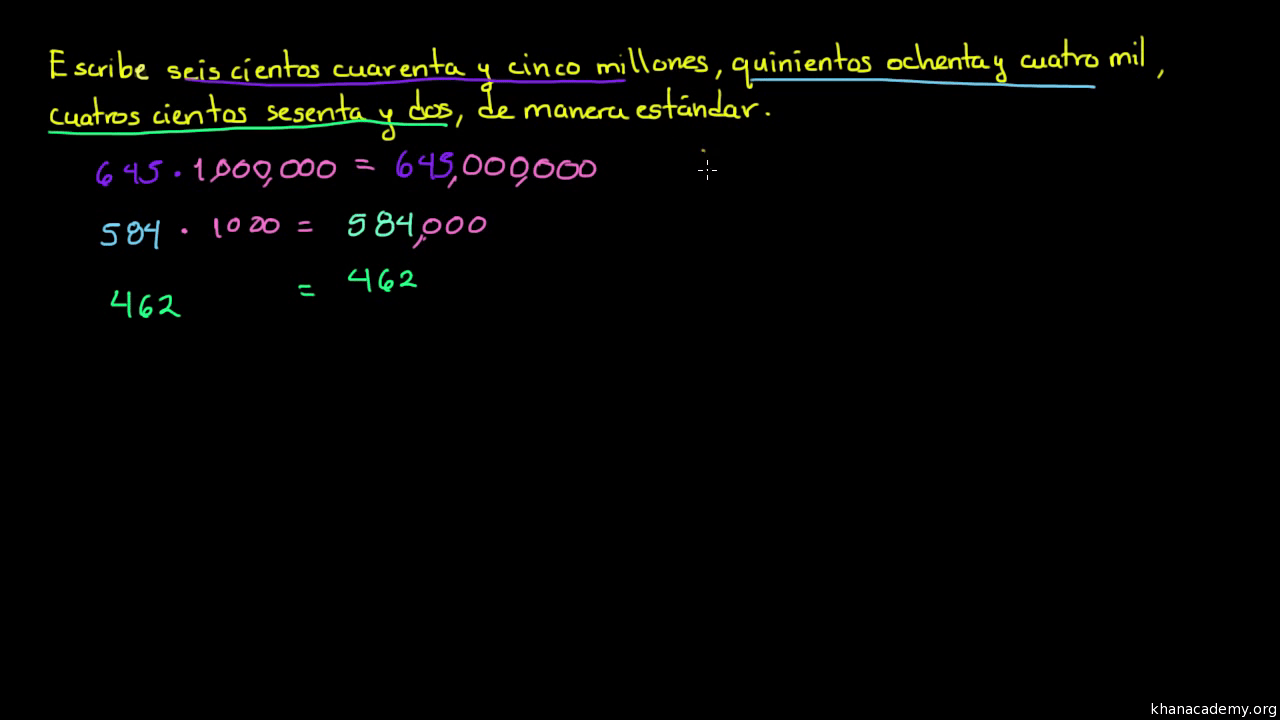 Escribe seis cientos cuarenta y cinco millones, quinientos ochenta y cuatro mil,
cuatros cientos sesenta y dos, de manera estándar.
645 · 1,000,000 = 645,000,000
584 · 1000 = 584,000
462 = 462
khanacademy.org